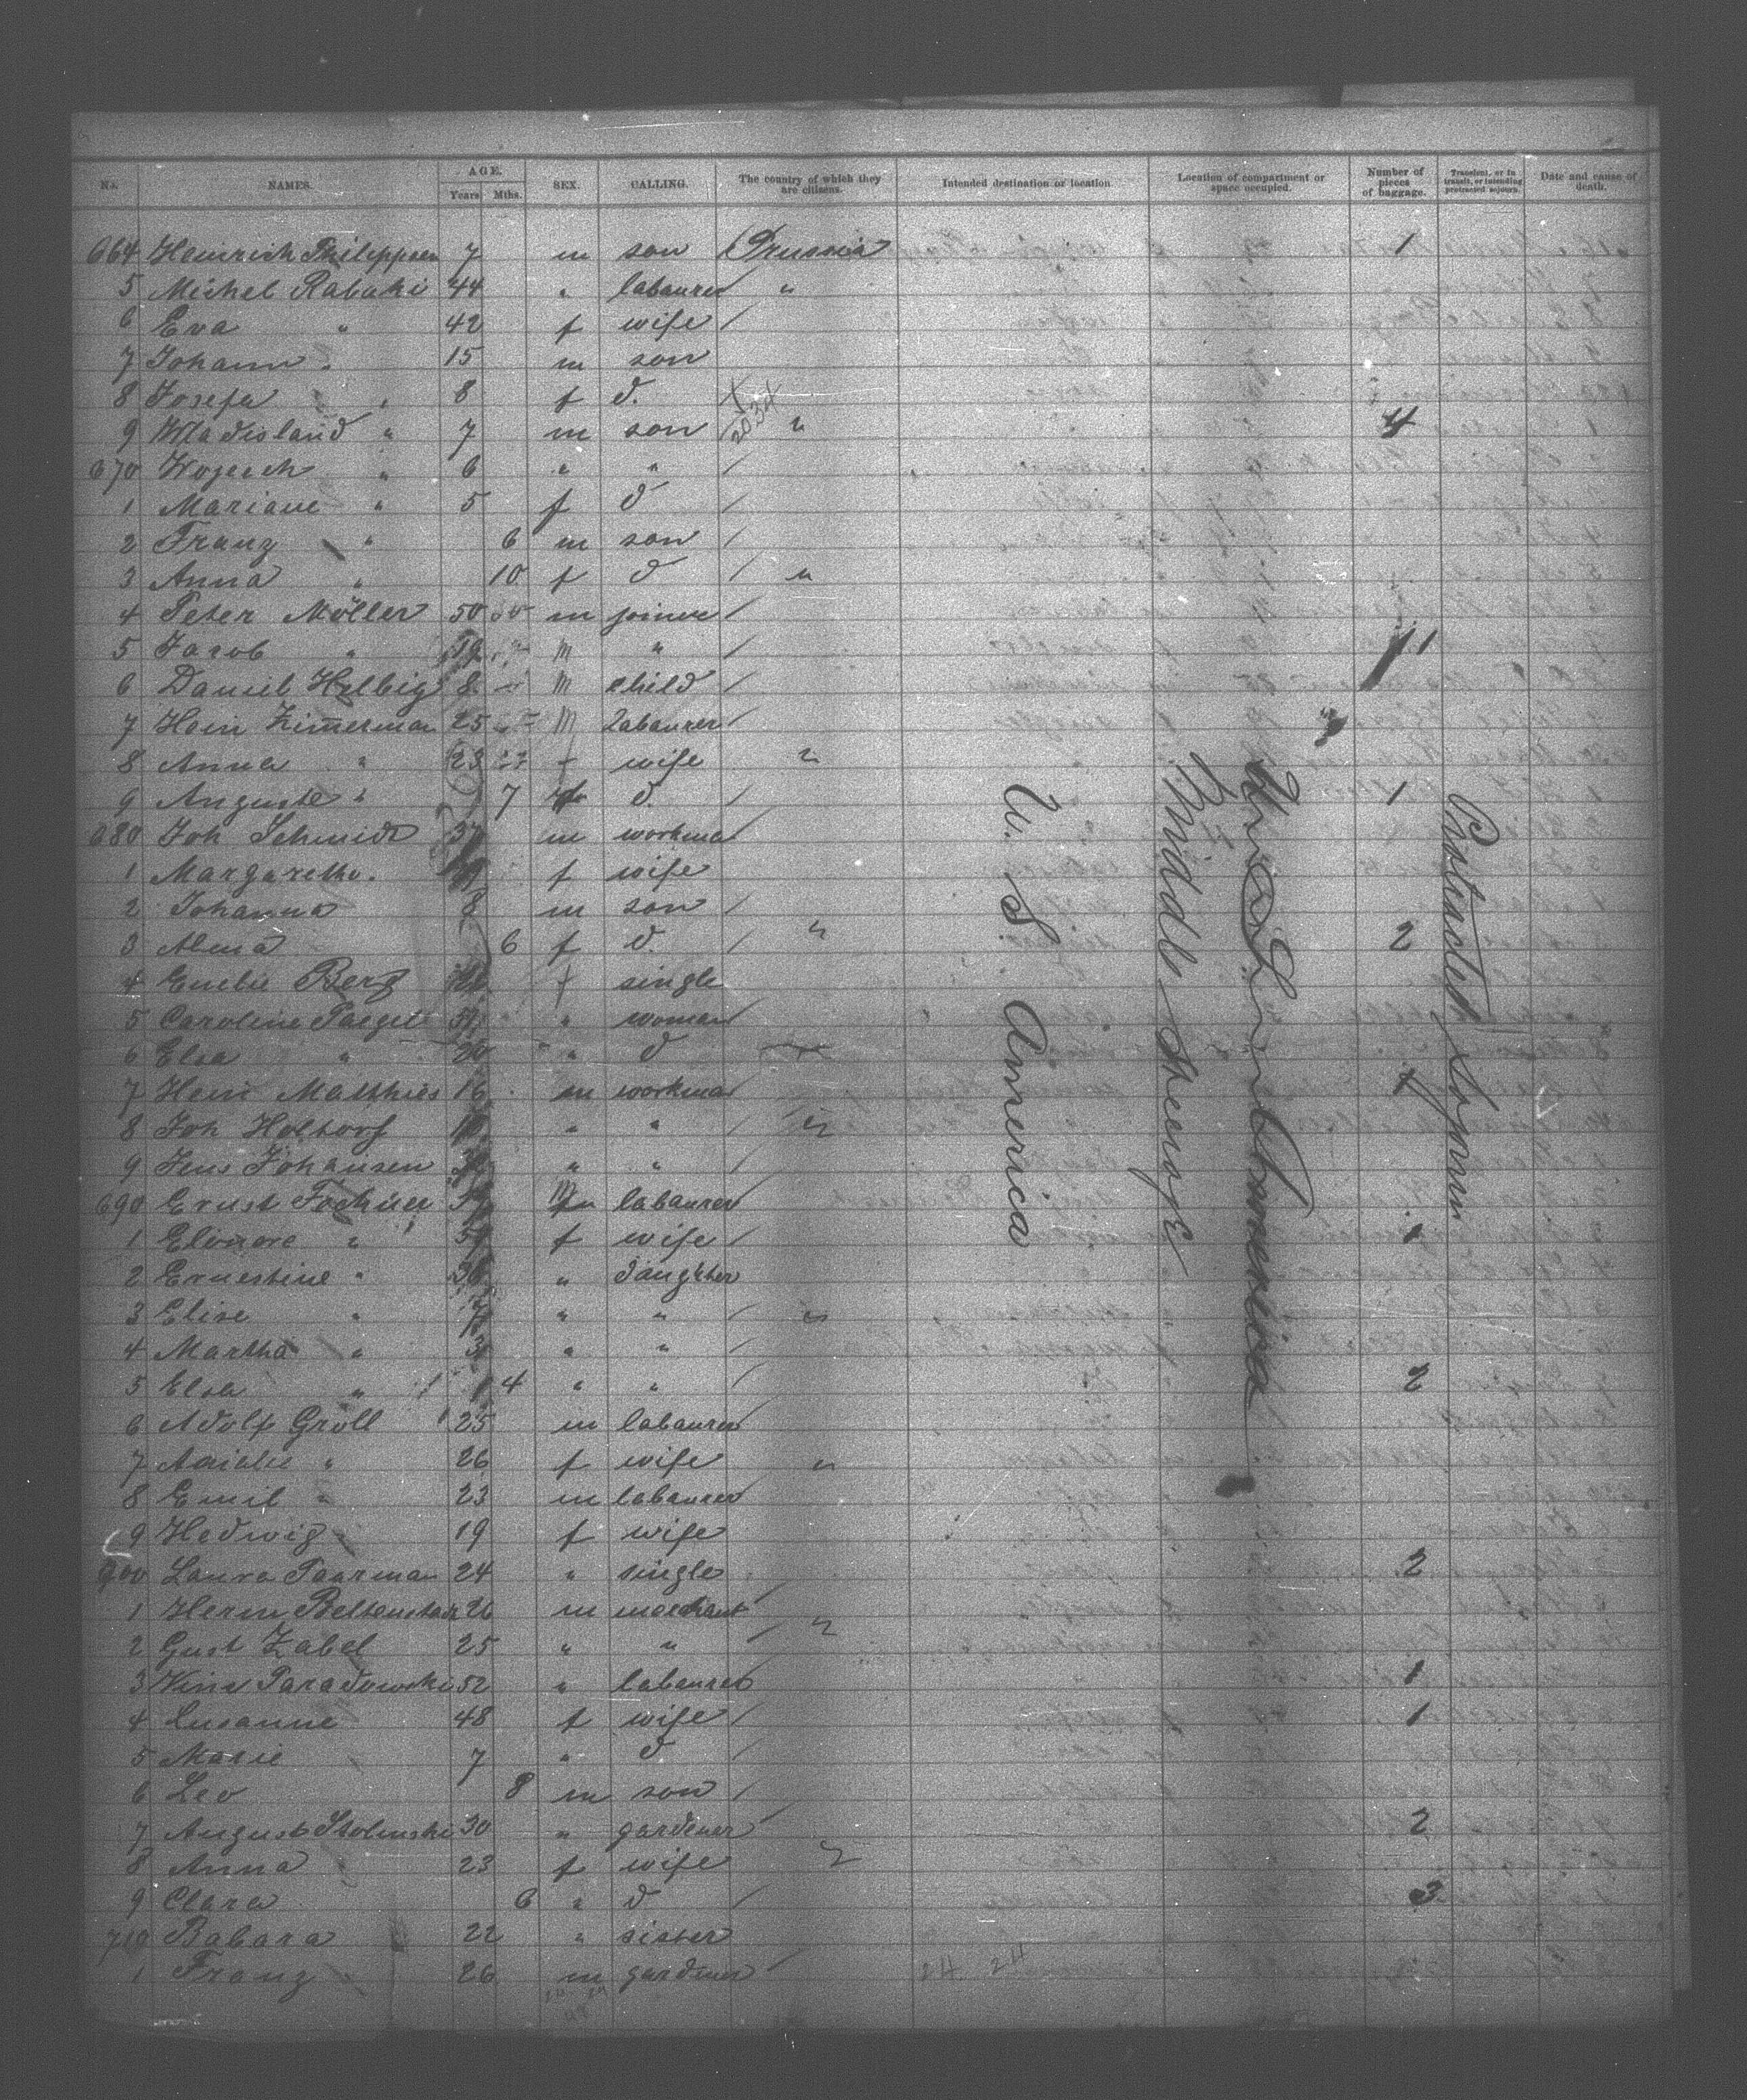 No. NAMES. AGE. Years Mths. SEX. CALLING. The country of which they are citizens. Intended destination or location Location of compartment or space occupied. Number of pieces of baggage. Transient, or in transit, or intending protracted sojourn. Date and cause of death.
664 Heinrich Philippsen 7 m son Prussia 1
5 Michel Rabuki 44 " labaurer "
6 Eva " 42 f wife /
7 Johann " 15 m son
8 Josefa " 8 f d.
9 Wladislaud " 7 m son " 4
670 Wojech " 6 " " /
1 Mariane " 5 f d /
2 Franz " 6 m son /
3 Anna " 10 f d / "
4 Peter Möller 50 m joiner /
5 Jacob " 19 m " / 1
6 Daniel Helbig 8 m child /
7 Hein Zimmerman 25 m Labaurer /
8 Anna " 23 f wife "
9 Auguste " 7 f d. / 1
680 Joh Schmidt 37 m workman
1 Margaretha. f wife
2 Johanna 8 m son /
3 Alma 6 f d. / " 2
4 Emelie Berg f single
5 Caroline Paegel " woman
6 Elsa " " d
7 Hein Matthies 16 m workman 1
8 Joh Holtorf " " / "
9 Jens Johansen " "
690 Ernst Fochner m labaurer
1 Elinore " f wife / 1
2 Ernestine " " daughter
3 Elise " " " / "
4 Martha " 3 " " /
5 Elsa " 1 4 " " / 2
6 Adolf Groll 25 m labaurer
7 Amalie " 26 f wife "
8 Emil " 23 m labaurer
9 Hedwig " 19 f wife
700 Laura Paarman 24 " single 2
1 Herm 26 m merchant "
2 Gust Zabel 25 " " /
3 Paradowski 52 " labaurer 1
4 Susanne 48 f wife / 1
5 Marie 7 " d /
6 Leo 8 m son /
7 August Stolinski 30 " gardener 2
8 Anna 23 f wife "
9 Clara 6 " d / 3
710 Babara 22 " sister
1 Franz 26 m gardener
24 24
U. S. America
Middle Steerage
Protracted Sojourn